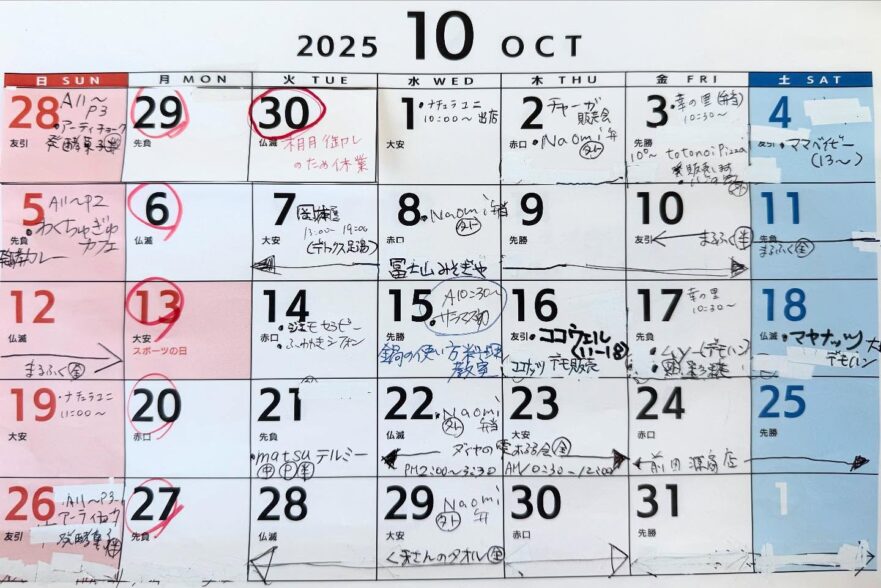 2025 10 OCT
日 SUN 月 MON 火 TUE 水 WED 木 THU 金 FRI 土 SAT
28 友引
A11〜
P3
・アーティチョーク
発酵菓子
29 先負
30 仏滅
棚卸し
のため休業
1 大安
・ナチュラユニ
10:00〜出店
2 赤口
チャーガ
販売会
・Naomi弁
外
3 先勝
・幸の里(弁当)
10:30〜
totonoiPizza
4 友引
・ママベイビー
(13〜)
5 先負
A11〜P2
・わくちゅぎゅ
カフェ
カレー
6 仏滅
7 大安
13:00〜
(デトックス足湯)
8 赤口
・Naomi弁当
外
9 先勝
富士山みそぎや
10 友引
まるふく
11 先負
まるふく
12 仏滅
まるふく
13 大安
スポーツの日
14 赤口
・ジェモセラピー
・ふわふわシフォン
15 先勝
A10:30〜
鍋の使い方料理
教室
16 友引
・ココウェル
(11-18)
ココナッツ デモ販売
17 先負
幸の里
10:30〜
・ムソー(デモハン)
18 仏滅
・マヤナッツ
デモハン
19 大安
・ナチュラユニ
11:00〜
20 赤口
21 先負
・matsuテルミー
22 仏滅
・Naomi
外 弁当
23 大安
PM2:00〜3:30
AM10:30〜12:00
24 赤口
前田源商店
25 先勝
26 友引
A11〜P3
アーティチョーク
発酵菓子
27 先負
28 仏滅
29 大安
・Naomi
外 弁
さんのタオル
30 赤口
31 先勝
1